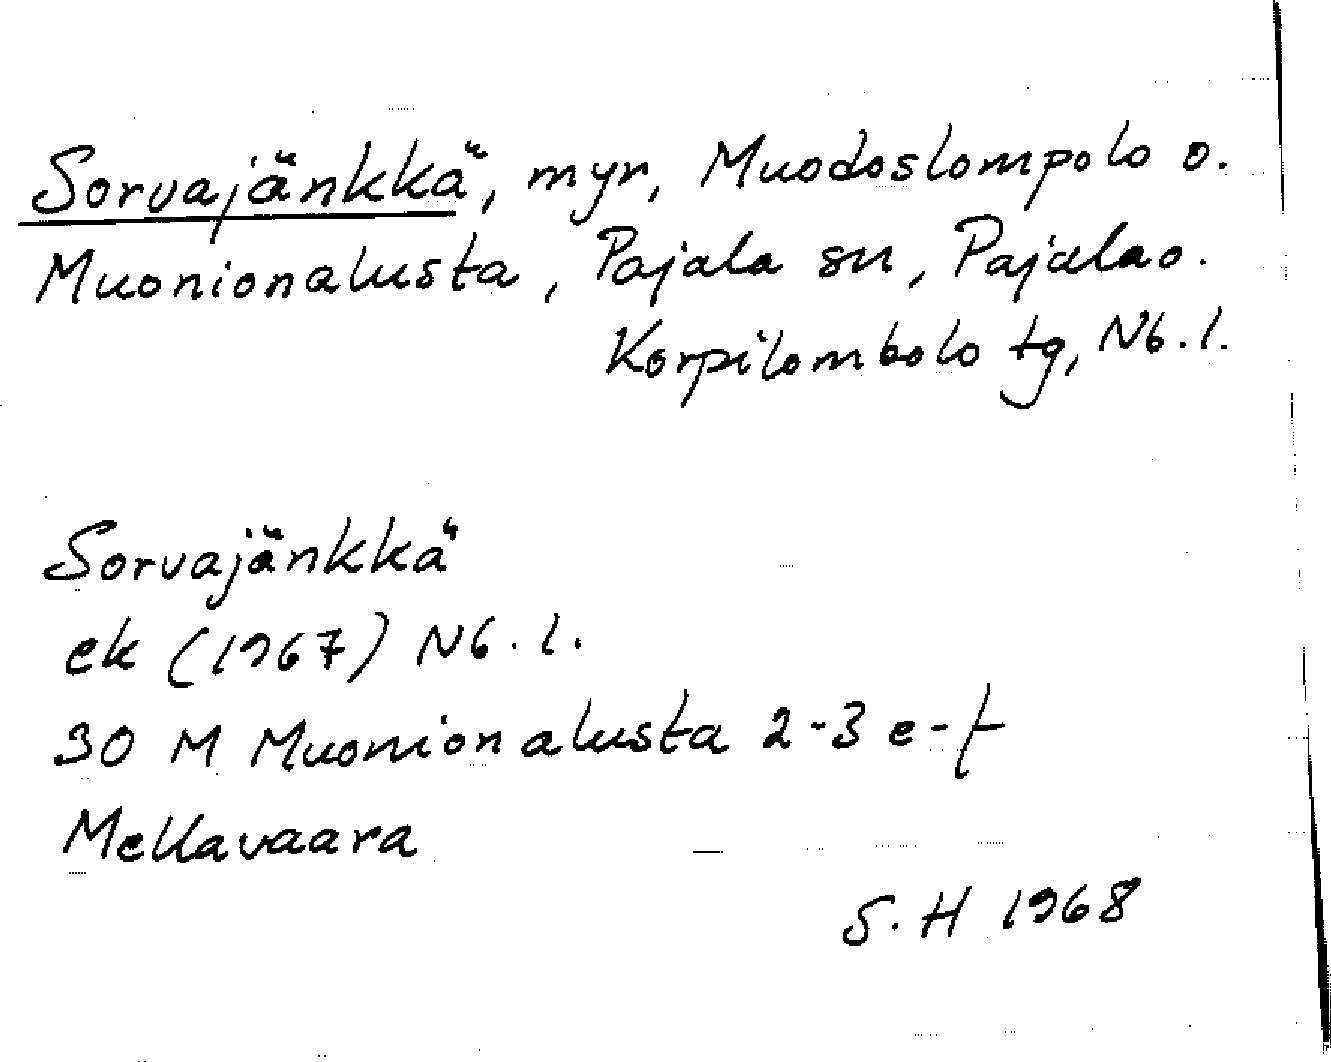 Sorvajänkkä, myr, Muodoslompolo o.
Muonionalusta, Pajala sn, Pajala o.
Korpilombolo tg, Nb. l.
Sorvajänkkä
ek (1967) Nb. l.
30 M Muonionalusta 2-3 e-f
Mellavaara
S. H 1968